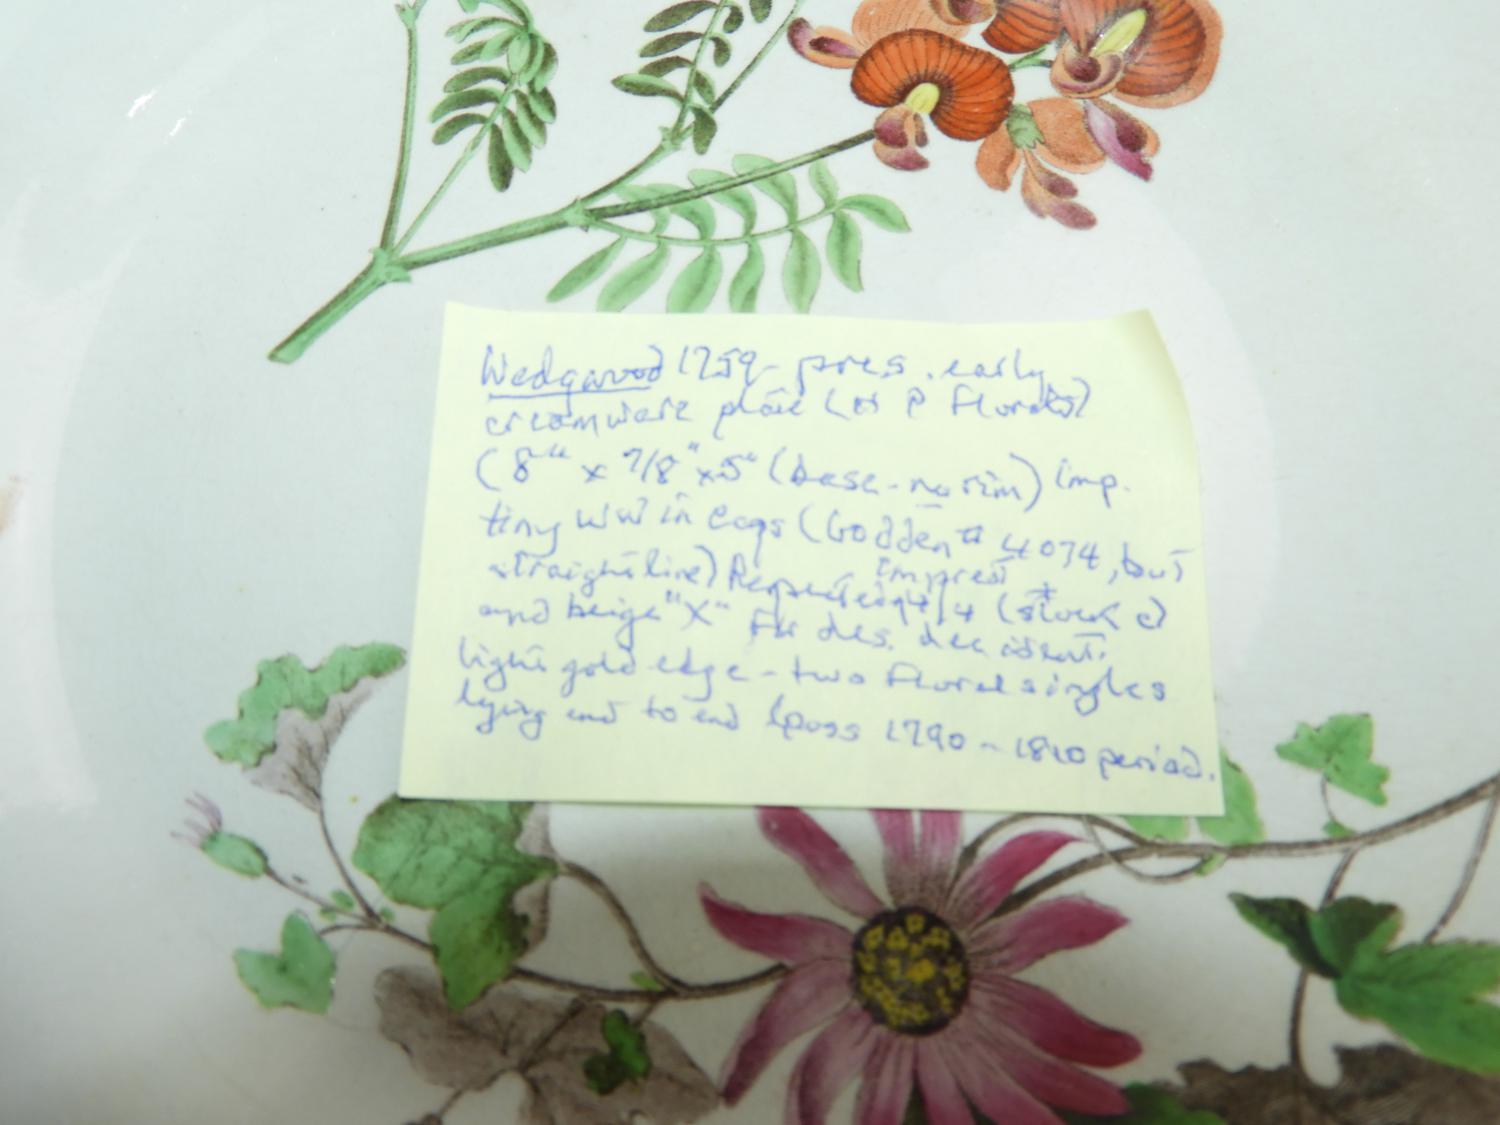 Wedgwood 1759- pres. early
creamware plate (H P Florals)
(8" x 7/8" x 5" (base - no rim) imp.
tiny WW in caps (Godden # 4074, but
straight line) Impres't
and beige "X" for des.
light gold edge - two floral singles
lying end to end (poss 1790 - 1820 period.